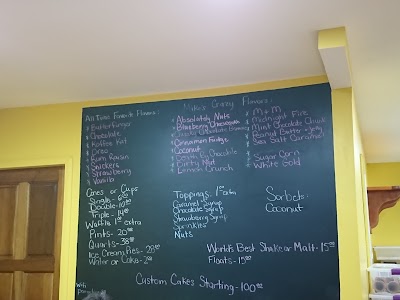 All Time Favorite Flavors:
Butterfinger
Chocolate
Koffee Kat
Oreo
Rum Raisin
Snickers
Strawberry
Vanilla
Mike's Crazy Flavors:
Absolutely Nuts
Blueberry Cheesecake
Chocolate Brownie
Cinnamon Fudge
Coconut
Chocolate
Dirty Nut
Lemon Crunch
M+M
Midnight Fire
Mint Chocolate Chunk
Peanut Butter + Jelly
Sea Salt Caramel
Sugar Corn
White Gold
Cones or Cups
Single - 6
Double - 10
Triple - 14
Waffles 1 extra
Pints - 20
Quarts - 38
Ice Cream Pies - 28
Water or Coke - 2
Toppings 1 extra
Caramel Syrup
Chocolate Syrup
Strawberry Syrup
Sprinkles
Nuts
Sorbets:
Coconut
World's Best Shake or Malt - 15
Floats - 15
Custom Cakes Starting - 100